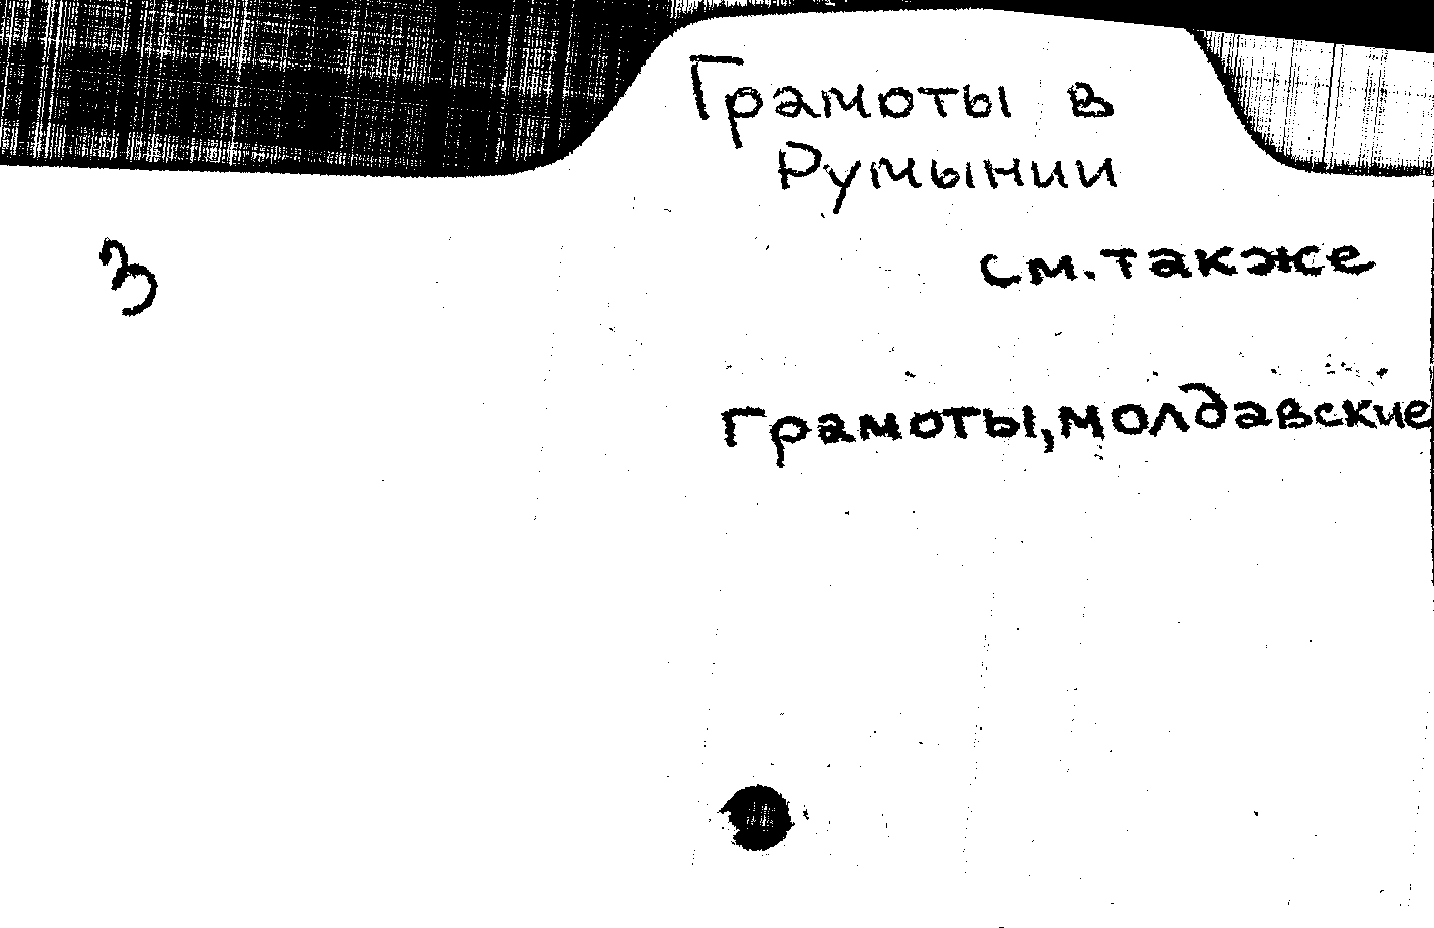 Грамоты в
Румынии
3
см. также
Грамоты, молдавские